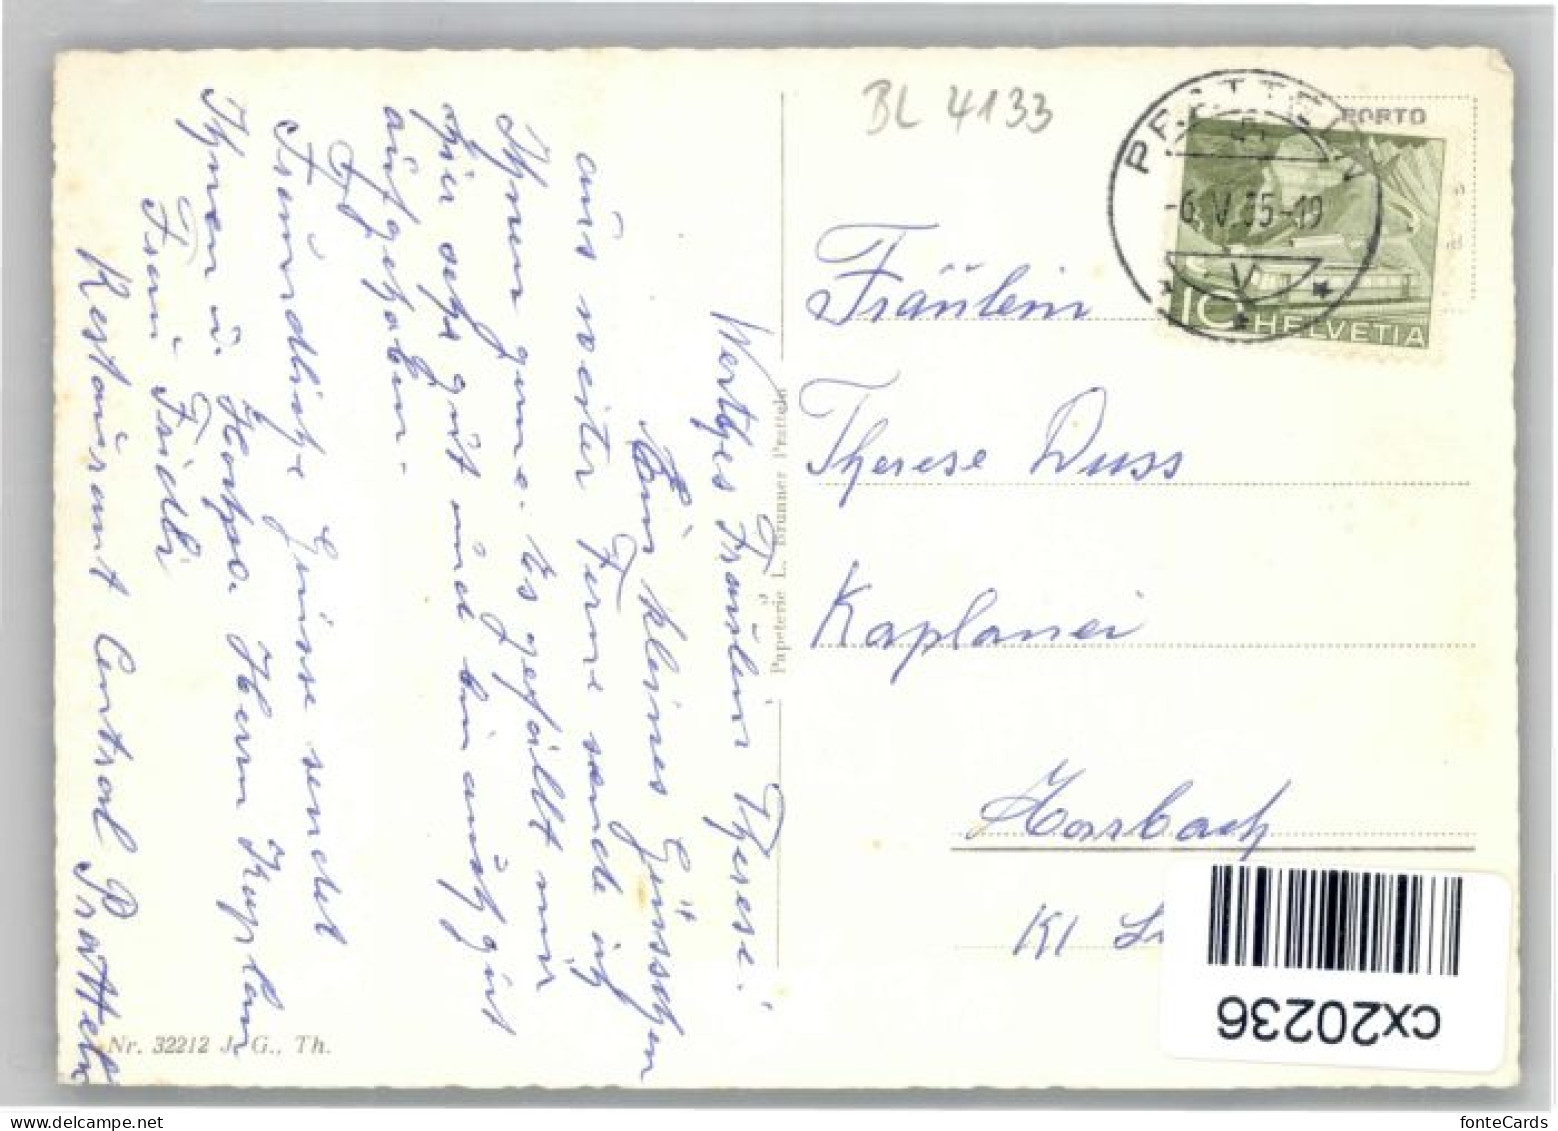 BL 4133
PORTO
PRATTELN
-6.V.55-19
V
10 HELVETIA
Fräulein
Therese Duss
Kaplanei
Horbach
Kl
Wertges Fräulein Therese!
Ein kleines Grüsschen
aus weiter Ferne sende ich
Ihnen gerne. Es gefällt mir
hier sehr gut und bin auch gut
aufgehoben.
Freundliche Grüsse sendet
Ihnen u. Hochw. Herrn Kaplan
Frau Fridli
Restaurant Central Pratteln
Papeterie L. Brunner Pratteln
Nr. 32212 J. G., Th.
cx20236
fonteCards